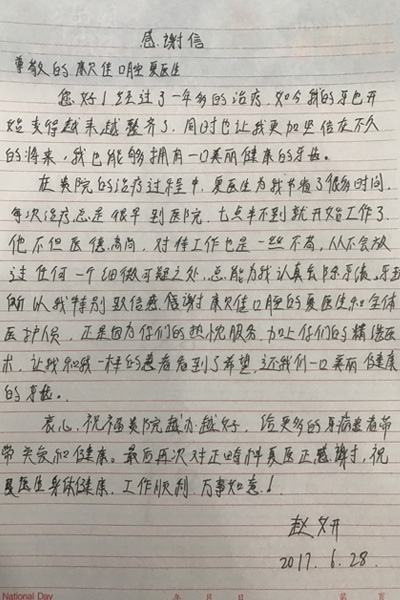 感谢信
尊敬的康贝佳口腔夏医生
您好！经过了一年多的治疗，如今我的牙也开
始变得越来越整齐了，同时也让我更加坚信在不久
的将来，我也能够拥有一口美丽健康的牙齿。
在贵院的治疗过程中，夏医生为我牺牲了很多时间，
每次治疗总是很早到医院，七点半不到就开始工作了
他不但医德高尚，对待工作也是一丝不苟，从不会放
过任何一个细微可疑之处，总能为我认真去除牙渍、牙垢
所以我特别致信感谢康贝佳口腔的夏医生和全体
医护人员，正是因为你们的热忱服务，加上你们的精湛医
术，让我和我一样的患者看到了希望，还我们一口美丽健康
的牙齿。
衷心祝福贵院越办越好，给更多的牙病患者带
带关爱和健康。最后再次对正畸科夏医生感谢，祝
夏医生身体健康，工作顺利，万事如意！
赵妍
2017.6.28
National Day 年 月 日 第 页